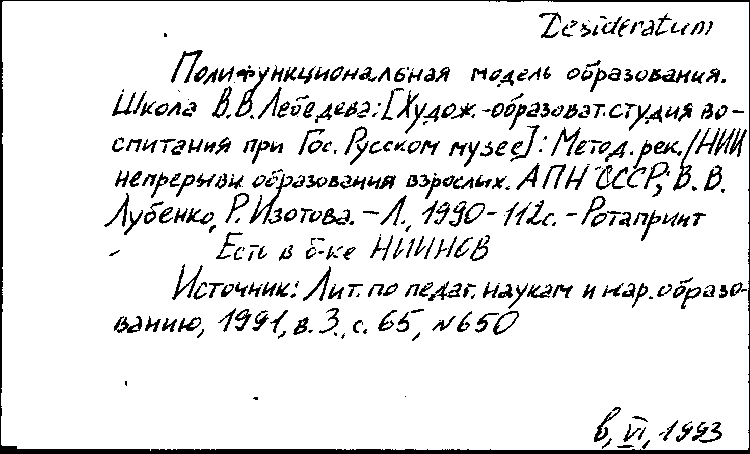 Desideratum
Полифункциональная модель образования.
Школа В.В. Лебедева: [Худож.-образоват. студия во-
спитания при Гос. Русском музее]: Метод. рек./НИИ
непрерывн. образования взрослых. АПН СССР; В.В.
Лубенко, Р. Изотова. – Л., 1990 – 112с. – Ротапринт
Есть в б-ке НИИНОВ
Источник: Лит. по педаг. наукам и нар. образо-
ванию, 1991, в. 3, с. 65, №650
6, VI, 1993